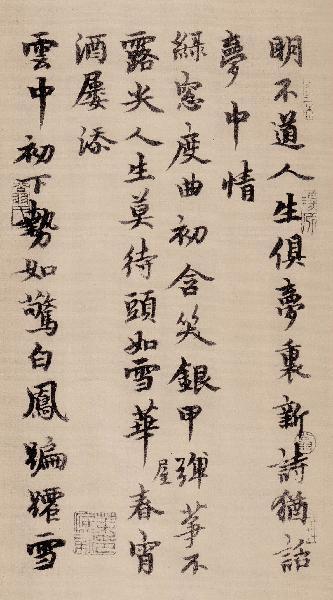 明不道人生俱夢裏新詩猶話
夢中情
綠窓度曲初含笑銀甲彈箏不
露尖人生莫待頭如雪華屋春宵
酒屢添
雲中初下勢如驚白鳳蹁躚雪